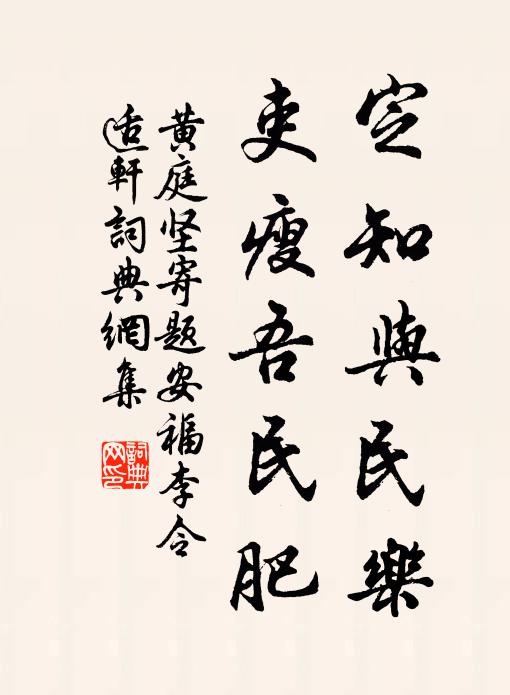 定知與民樂
吏瘦吾民肥
黄庭坚寄題安福李令
适軒詞典網集
詞典网印